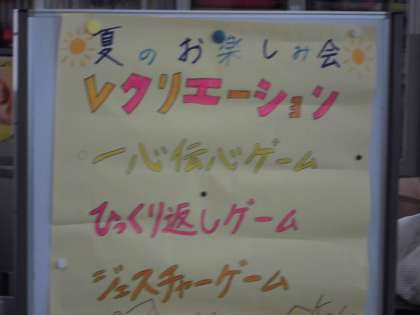 夏のお楽しみ会
レクリエーション
一心伝心ゲーム
ひっくり返しゲーム
ジェスチャーゲーム